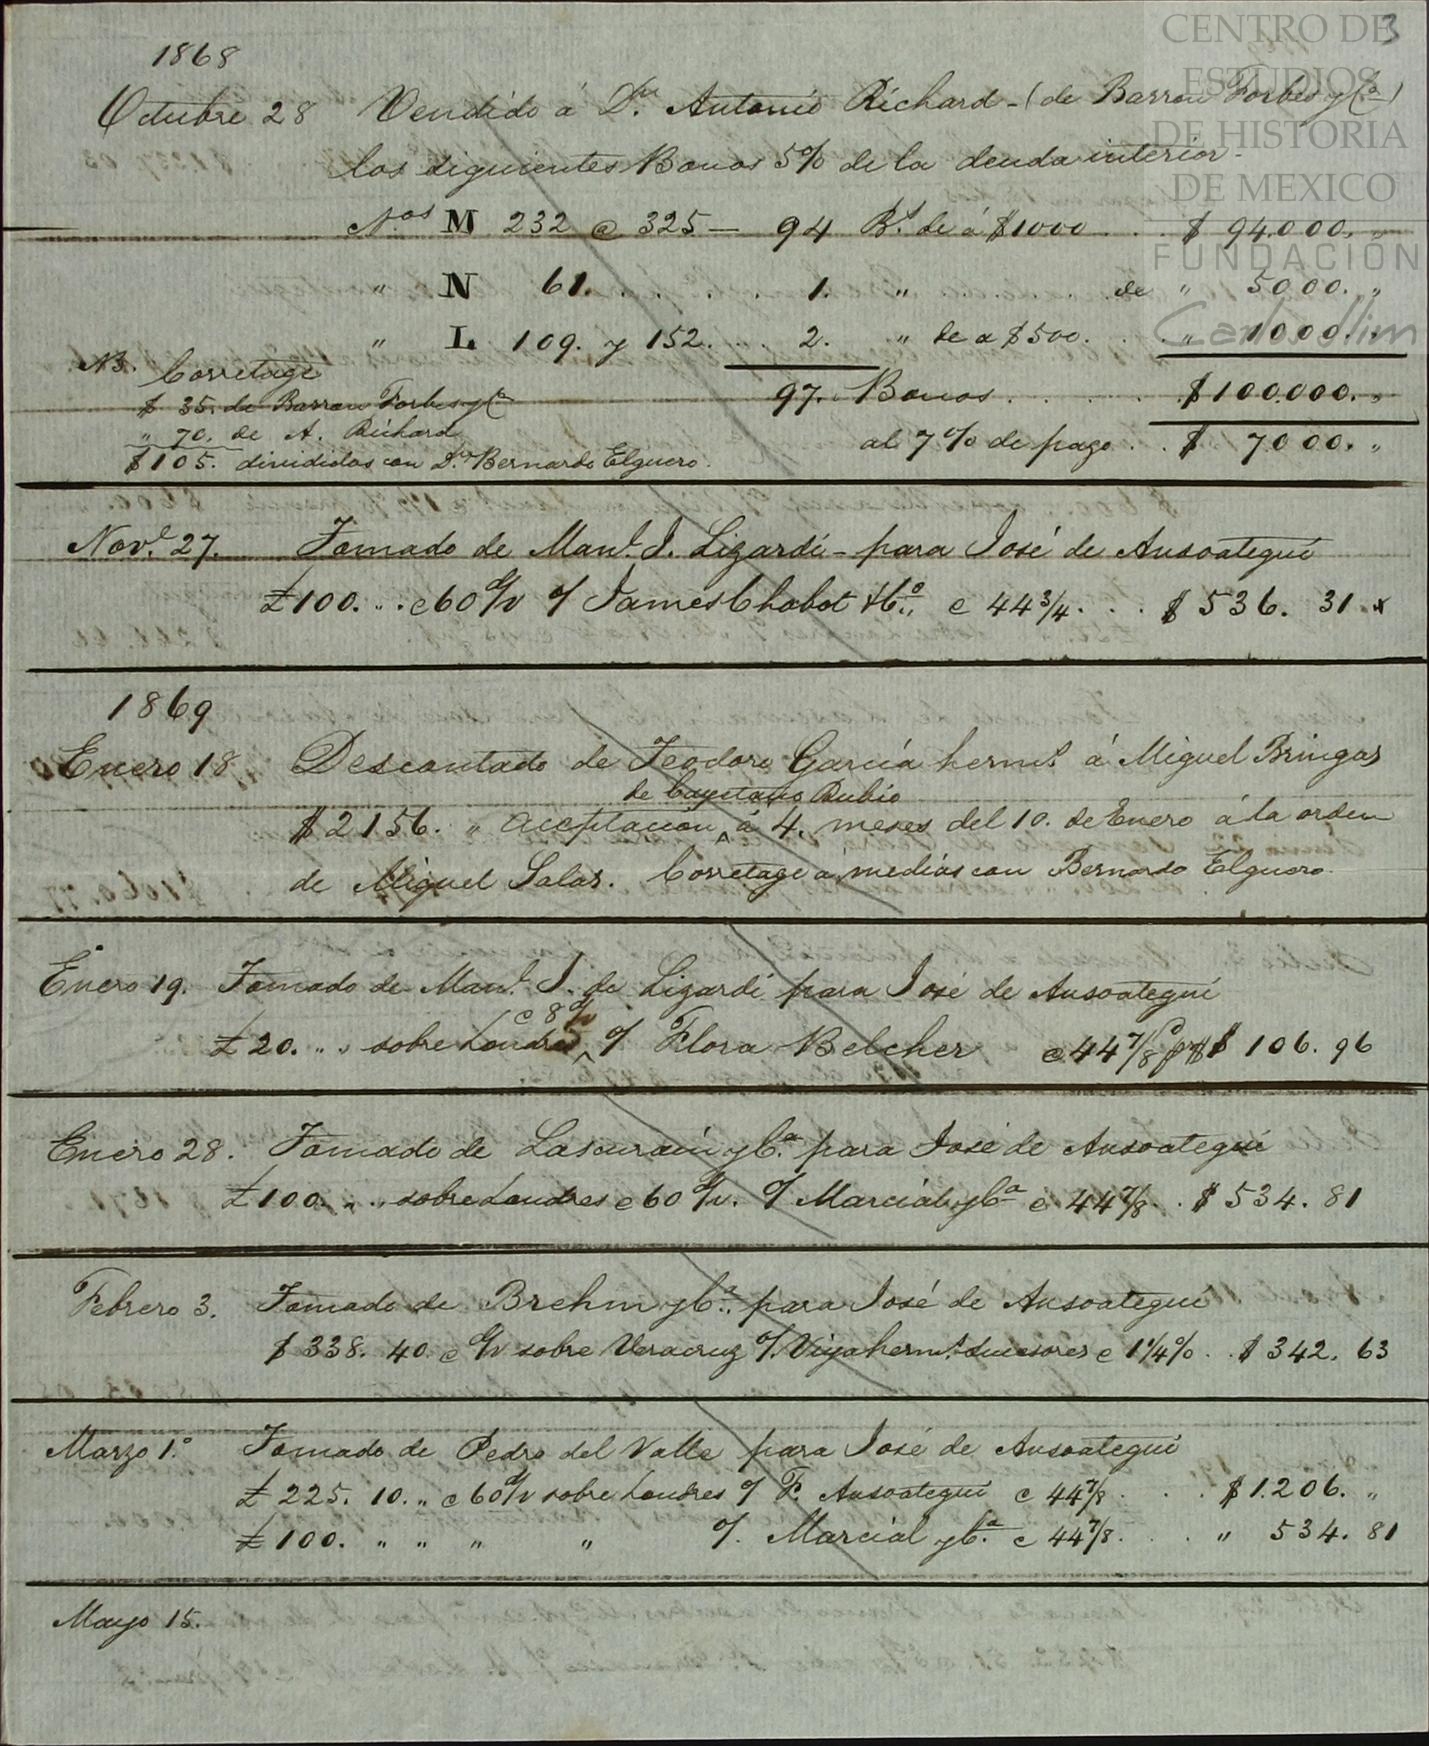 3
CENTRO DE
ESTUDIOS
DE HISTORIA
DE MEXICO
FUNDACIÓN
Carlos Slim
1868
Octubre 28 Vendido á Dn. Antonio Richard - (de Barron Forbes y Ca)
los siguientes Bonos 5% de la deuda interior.
Nos M 232 @ 325 — 94 Bs. de á $1000 . . $ 94.000. "
" N 61. . . . . 1. " . . . . . de " 5000. "
" L 109. y 152. . . . 2. " de a $500. . . " 1000. "
97. Bonos . . . . $100.000. "
al 7% de pago . . $ 7000. "
NB. Corretage
$ 35. de Barron Forbes y Ca
" 70. de A. Richard
$105. divididos con Dn. Bernardo Elguero.
Nove. 27. Tomado de Manl. J. Lizardi - para José de Ansoategui
£100. . . @ 60 d/v c/ James Chabot & Co. @ 44 3/4. . . $ 536. 31 x
1869
Enero 18 Descontado de Teodoro García hermo. á Miguel Bringas
de Cayetano Rubio
$2156. " aceptacion ^ á 4. meses del 10. de Enero á la orden
de Miguel Salas. Corretage á medias con Bernardo Elguero.
Enero 19. Tomado de Manl. J. de Lizardi para José de Ansoategui
@ 8 d/v
£ 20. " . sobre Londres ^ c/ Flora Belcher @ 44 7/8 $ 106. 96
Enero 28. Tomado de Lascurain y Ca. para José de Ansoategui
£100. " . . sobre Londres @ 60 d/v. c/ Marcial y Ca @ 44 7/8 . . $ 534. 81
Febrero 3. Tomado de Brehm y Ca. para José de Ansoategui
$ 338. 40. @ d/v sobre Veracruz c/. Viya hermo. Sucesores @ 1 1/4% . . $ 342. 63
Marzo 1.o Tomado de Pedro del Valle para José de Ansoategui
£ 225. 10. " @ 60 d/v sobre Londres c/ F. Ansoategui @ 44 7/8 . . . $ 1.206. "
£ 100. " " " " c/. Marcial y Ca. @ 44 7/8. . . " 534. 81
Mayo 15.